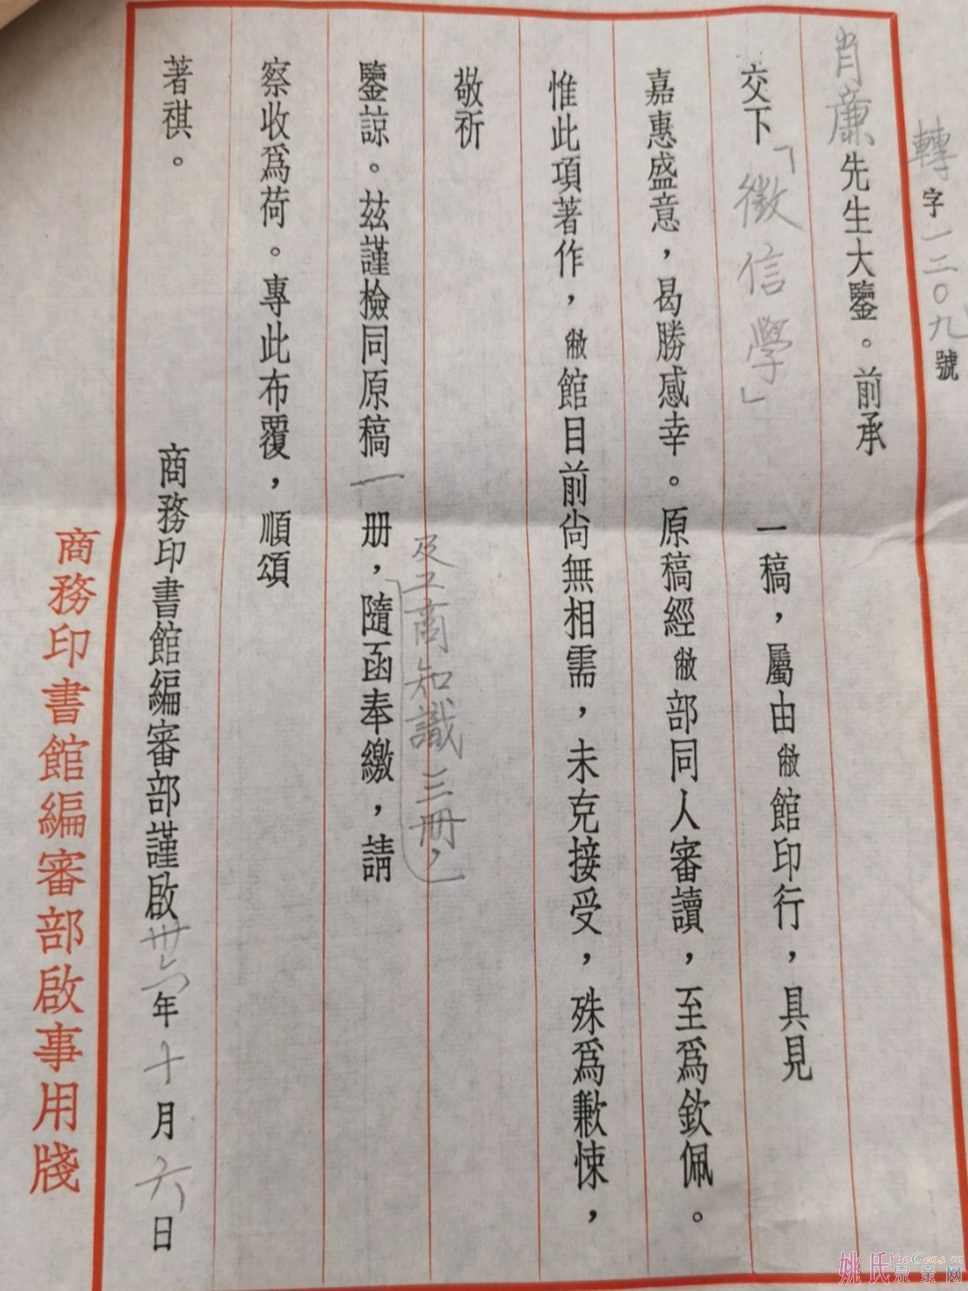 轉字一二〇九號
肖廉先生大鑒。前承
交下「徵信學」一稿，屬由敝館印行，具見
嘉惠盛意，曷勝感幸。原稿經敝部同人審讀，至爲欽佩。
惟此項著作，敝館目前尙無相需，未克接受，殊爲歉悚，
敬祈
及工商知識三冊，
鑒諒。玆謹檢同原稿一册，隨函奉繳，請
察收爲荷。專此布覆，順頌
著祺。
商務印書館編審部謹啟卅六年十月六日
商務印書館編審部啟事用牋
姚氏宗亲网
YaoGens.cn